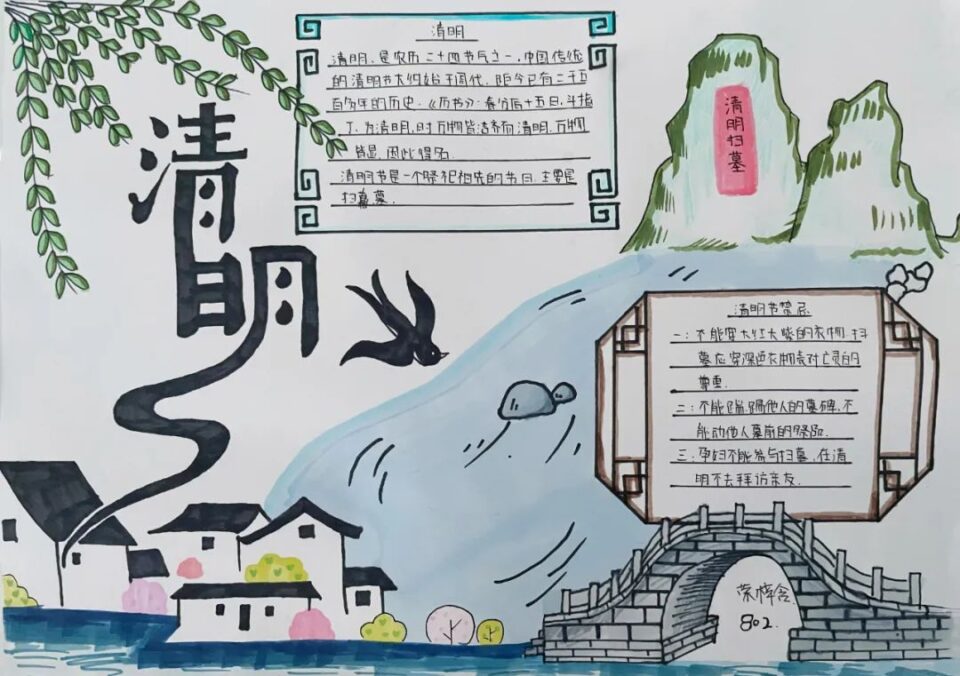 清明
清明
清明，是农历二十四节气之一，中国传统
的清明节大约始于周代，距今已有二千五
百多年的历史.《历书》：春分后十五日，斗指
丁，为清明，时万物皆洁齐而清明，万物
皆显，因此得名.
清明节是一个祭祀祖先的节日.主要是
扫墓.
清明扫墓
清明节禁忌
一：不能穿大红大紫的衣物，扫
墓应穿深色衣物表对亡灵的
尊重.
二：不能踹踢他人的墓碑，不
能动他人墓前的祭品.
三：孕妇不能参与扫墓，在清
明不去拜访亲友.
802.